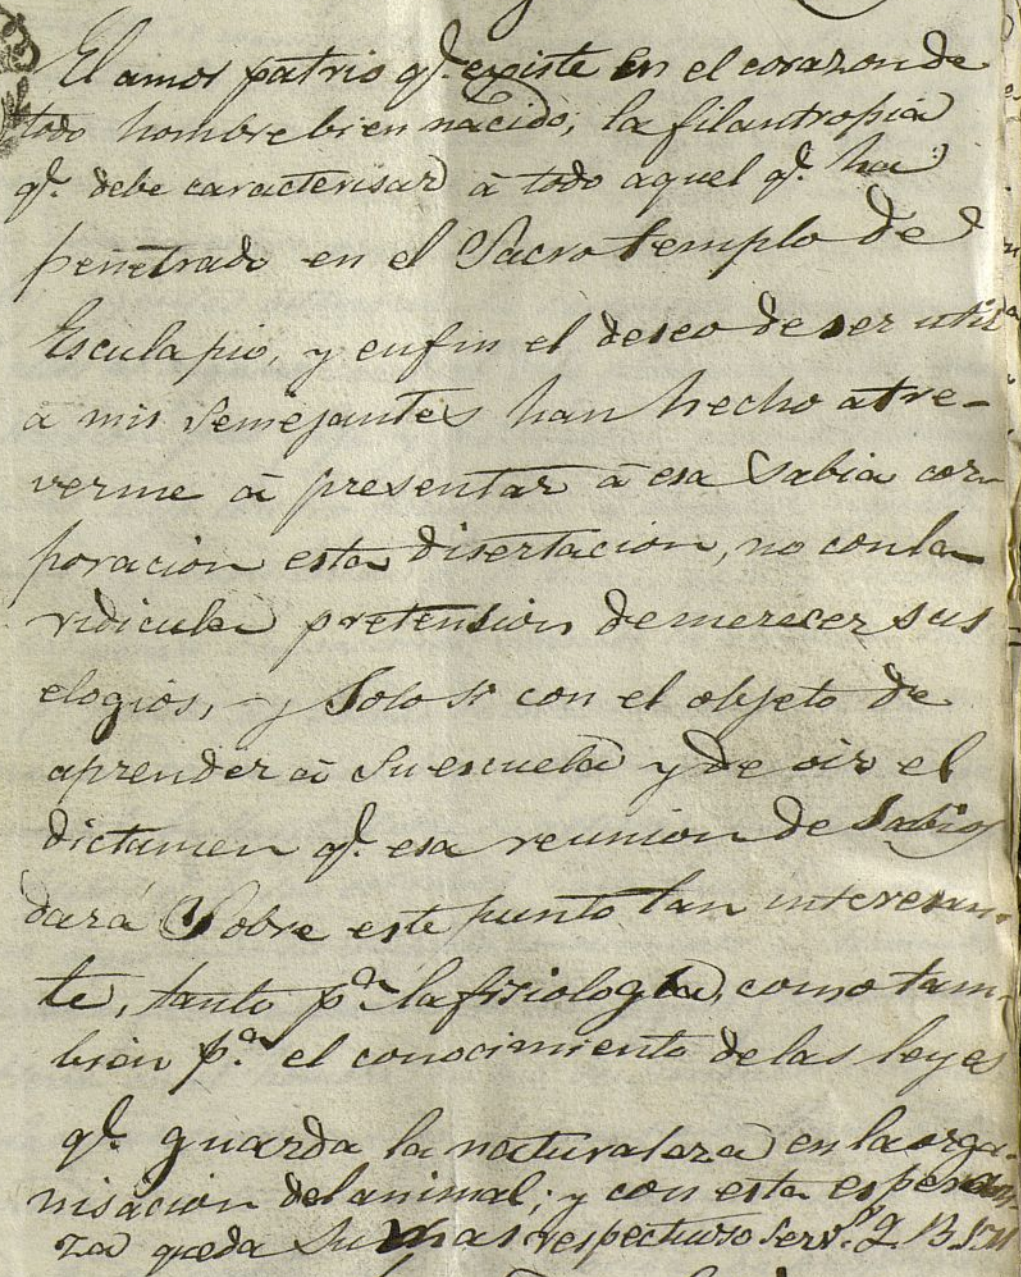 El amor patrio q.e existe en el corazon de
todo hombre bien nacido, la filantropia
q.e debe caracterisar à todo aquel q.e ha
penetrado en el Sacro templo de
Esculapio, y enfin el deseo de ser util
à mis semejantes han hecho atre-
verme à presentar à esa Sabia cor-
poracion esta disertacion, no con la
ridicula pretension de merecer sus
elogios, y Solo si con el objeto de
aprender à su escuela y de oir el
dictamen q.e esa reunion de Sabios
dará Sobre este punto tan interesan-
te, tanto p.a la fisiologia, como tam-
bien p.a el conocimiento de las leyes
q.e guarda la naturaleza en la orga-
nisacion del animal; y con esta esperan-
za queda su mas respectuoso Serv.r Q. B. S. M